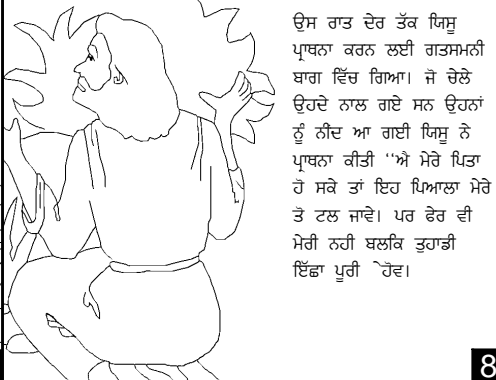 ਉਸ ਰਾਤ ਦੇਰ ਤੱਕ ਯਿਸੂ
ਪ੍ਰਾਥਨਾ ਕਰਨ ਲਈ ਗਤਸਮਨੀ
ਬਾਗ ਵਿੱਚ ਗਿਆ। ਜੋ ਚੇਲੇ
ਉਹਦੇ ਨਾਲ ਗਏ ਸਨ ਉਹਨਾਂ
ਨੂੰ ਨੀਂਦ ਆ ਗਈ ਯਿਸੂ ਨੇ
ਪ੍ਰਾਥਨਾ ਕੀਤੀ ‘‘ਐ ਮੇਰੇ ਪਿਤਾ
ਹੋ ਸਕੇ ਤਾਂ ਇਹ ਪਿਆਲਾ ਮੇਰੇ
ਤੋ ਟਲ ਜਾਵੇ। ਪਰ ਫੇਰ ਵੀ
ਮੇਰੀ ਨਹੀ ਬਲਕਿ ਤੁਹਾਡੀ
ਇੱਛਾ ਪੂਰੀ ੇਹੋਵ।
8